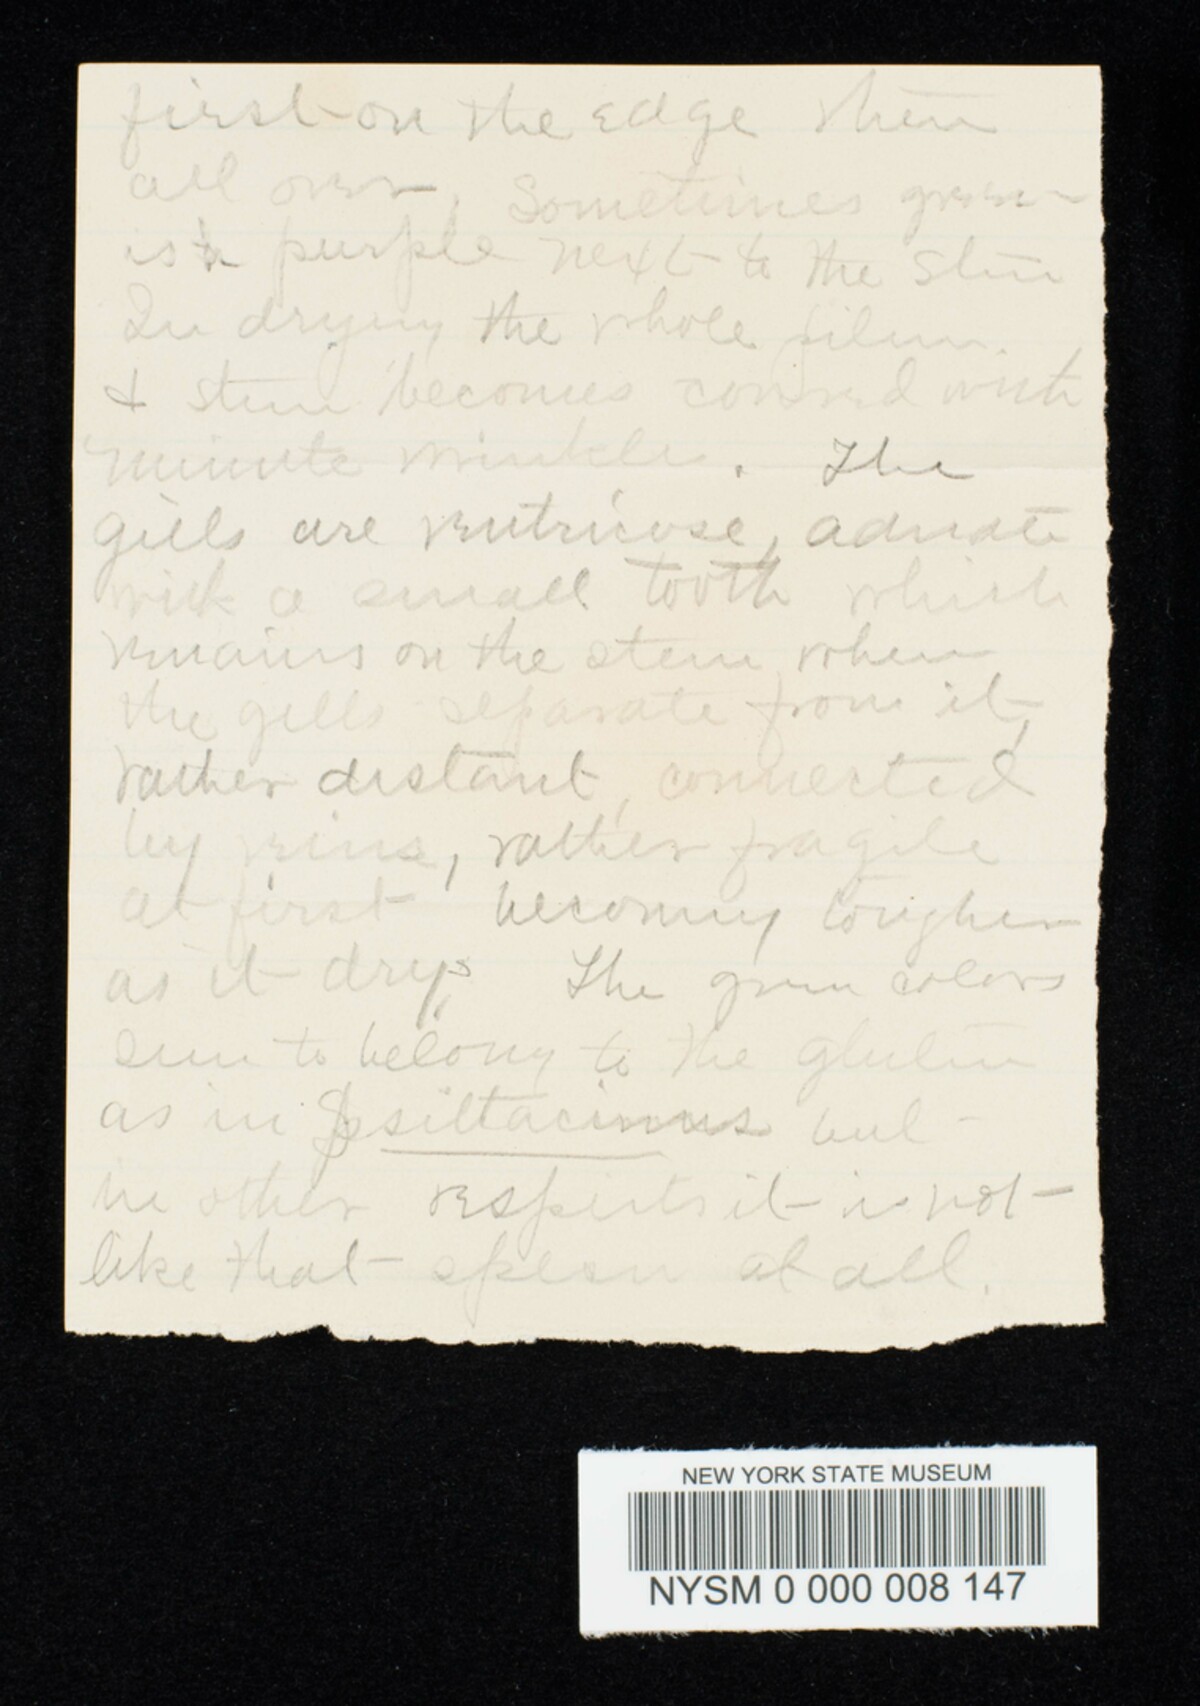 first on the edge then
all over, Sometimes green
is purple next to the stem
In drying the whole pileus
& stem becomes covered with
minute wrinkles. The
gills are ventricose, adnate
with a small tooth which
remains on the stem when
the gills separate from it,
rather distant, connected
by veins, rather fragile
at first becoming tougher
as it drys The green colors
seem to belong to the gluten
as in psittacinus but
in other respects it is not
like that specn at all.
NEW YORK STATE MUSEUM
NYSM 0 000 008 147